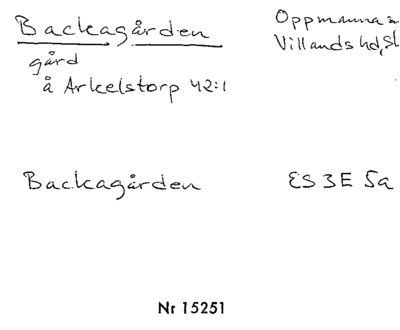 Backagården
Oppmanna
gård
Villands hd,
å Arkelstorp 42:1
Backagården
ES 3E 5a
Nr 15251